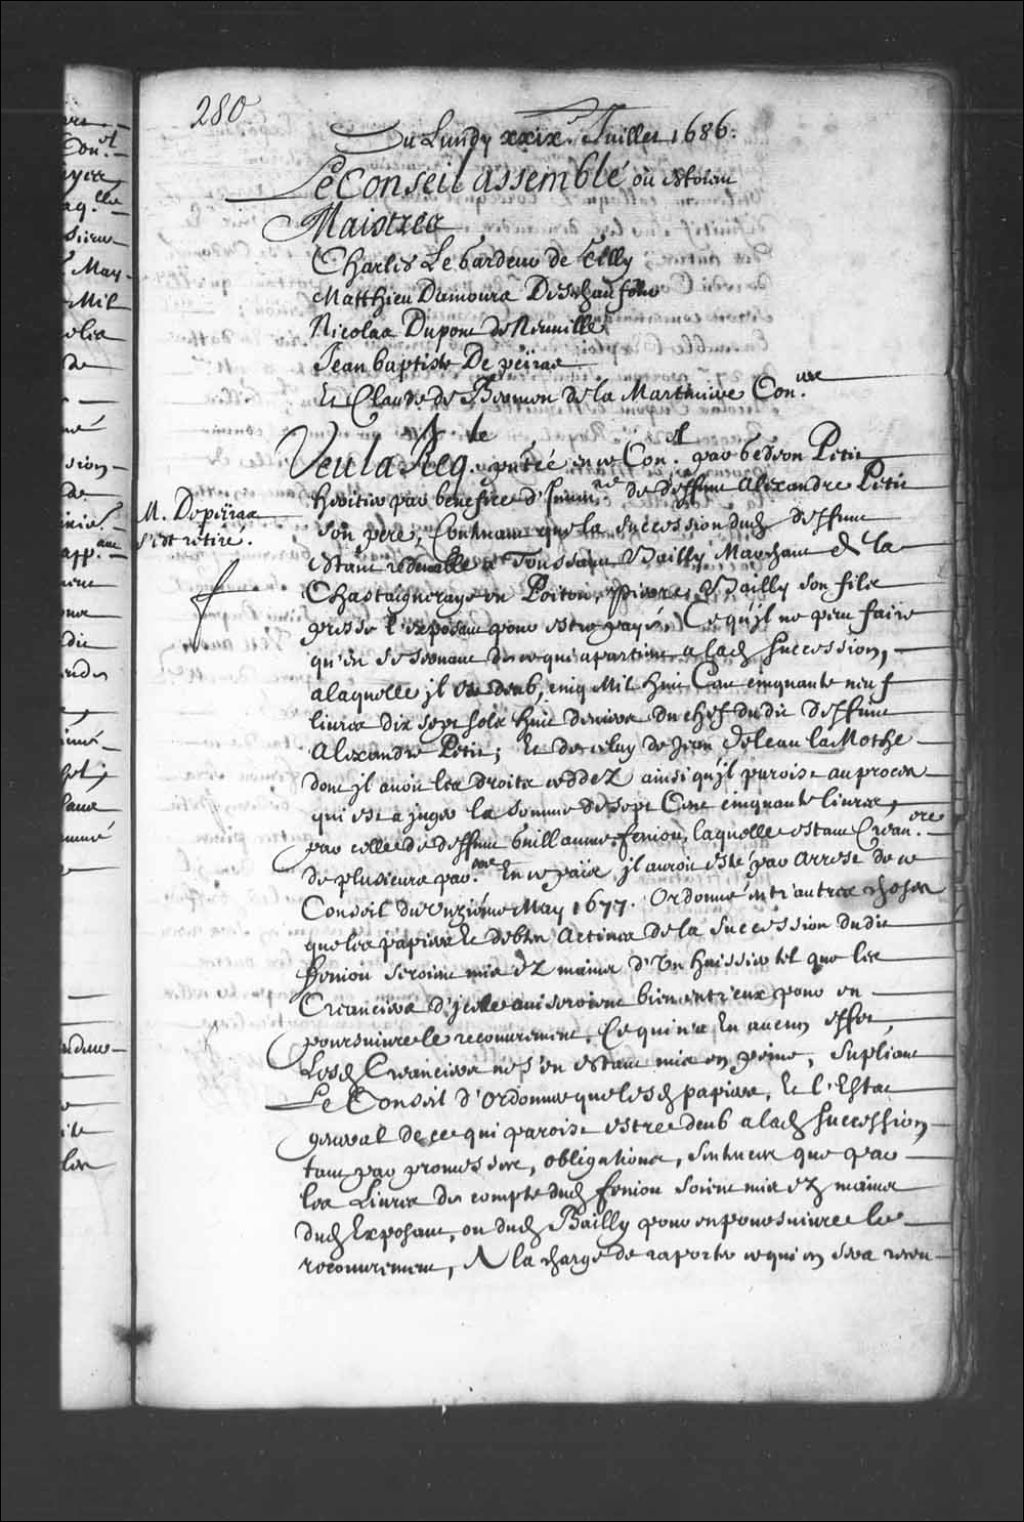 280
Du Lundy xxix.e Juillet 1686.
Le Conseil assemblé où estoient
Maistres
Charles Le Gardeur de Tilly
Matthieu Damours Deschaufour
Nicolas Dupont de Neuville
Jean Baptiste De peiras
Et Claude de Bermen de la Martiniere Con.ers
Veu la Req.te pntée en ce Con.el par Gedeon Petit
heritier par benefice d'Inven.re de deffunt Alexandre Petit
M. Depeiras
s'est retiré.
son pere, Contenant que la succession dud deffunt
estant redevable a Toussaint Bailly Marchant de la
Chastaigneraye en Poitou, Bailly son fils
presse l'exposant pour estre payé, Ce qu'jl ne peut faire
qu'en se servant de ce qui apartient a lad succession,
a laquelle jl est deub, cinq Mil huit Cent cinquante neuf
livres dix sept sols huit deniers du chef dudit deffunt
Alexandre Petit; Et de celuy de Jean Deleau la Mothe
dont jl avoit les droits ceddez ainsi qu'jl paroist au proces
qui est a juger la somme de sept Cent cinquante livres,
par celle de deffunt Guillaume feniou, laquelle estant Crean.ere
de plusieurs par. En ce païs jl auroit esté par Arrest de ce
Conseil du unziéme May 1677. Ordonné entr'autres choses
que les papiers Et debtes actives de la succession dudit
feniou seroient mis ez mains d'Un huissier tel que les
Creanciers d'jcelle aviseroient bien entr'eux pour en
poursuivre le recouvrement, Ce qui n'a Eu aucun effet,
Lesd Creanciers ne s'en estant mis en peine, Supliant
Le Conseil d'Ordonner que lesd papiers, Et l'Estat
general de ce qui paroist estre deub a lad succession
tant par promesses, obligations, sentences que par
les Livres de compte dud feniou soient mis ez mains
dud Exposant, ou dud Bailly pour en poursuivre le
recouvrement, A la charge de raporter ce qui en sera receu